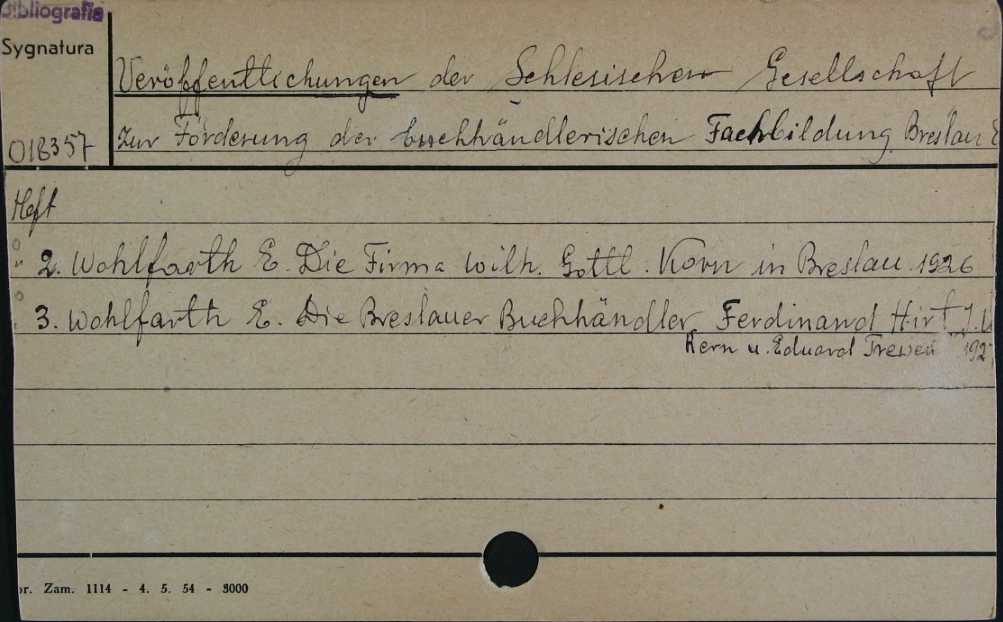 Bibliografia
Sygnatura
Veröffentlichungen der Schlesischen Gesellschaft
018357
zur Förderung der buchhändlerischen Fachbildung Breslau
Heft
2. Wohlfarth E. Die Firma Wilh. Gottl. Korn in Breslau 1926
3. Wohlfarth E. Die Breslauer Buchhändler Ferdinand Hirt J. U
Kern u. Eduard 192
Zam. 1114 - 4. 5. 54 - 3000